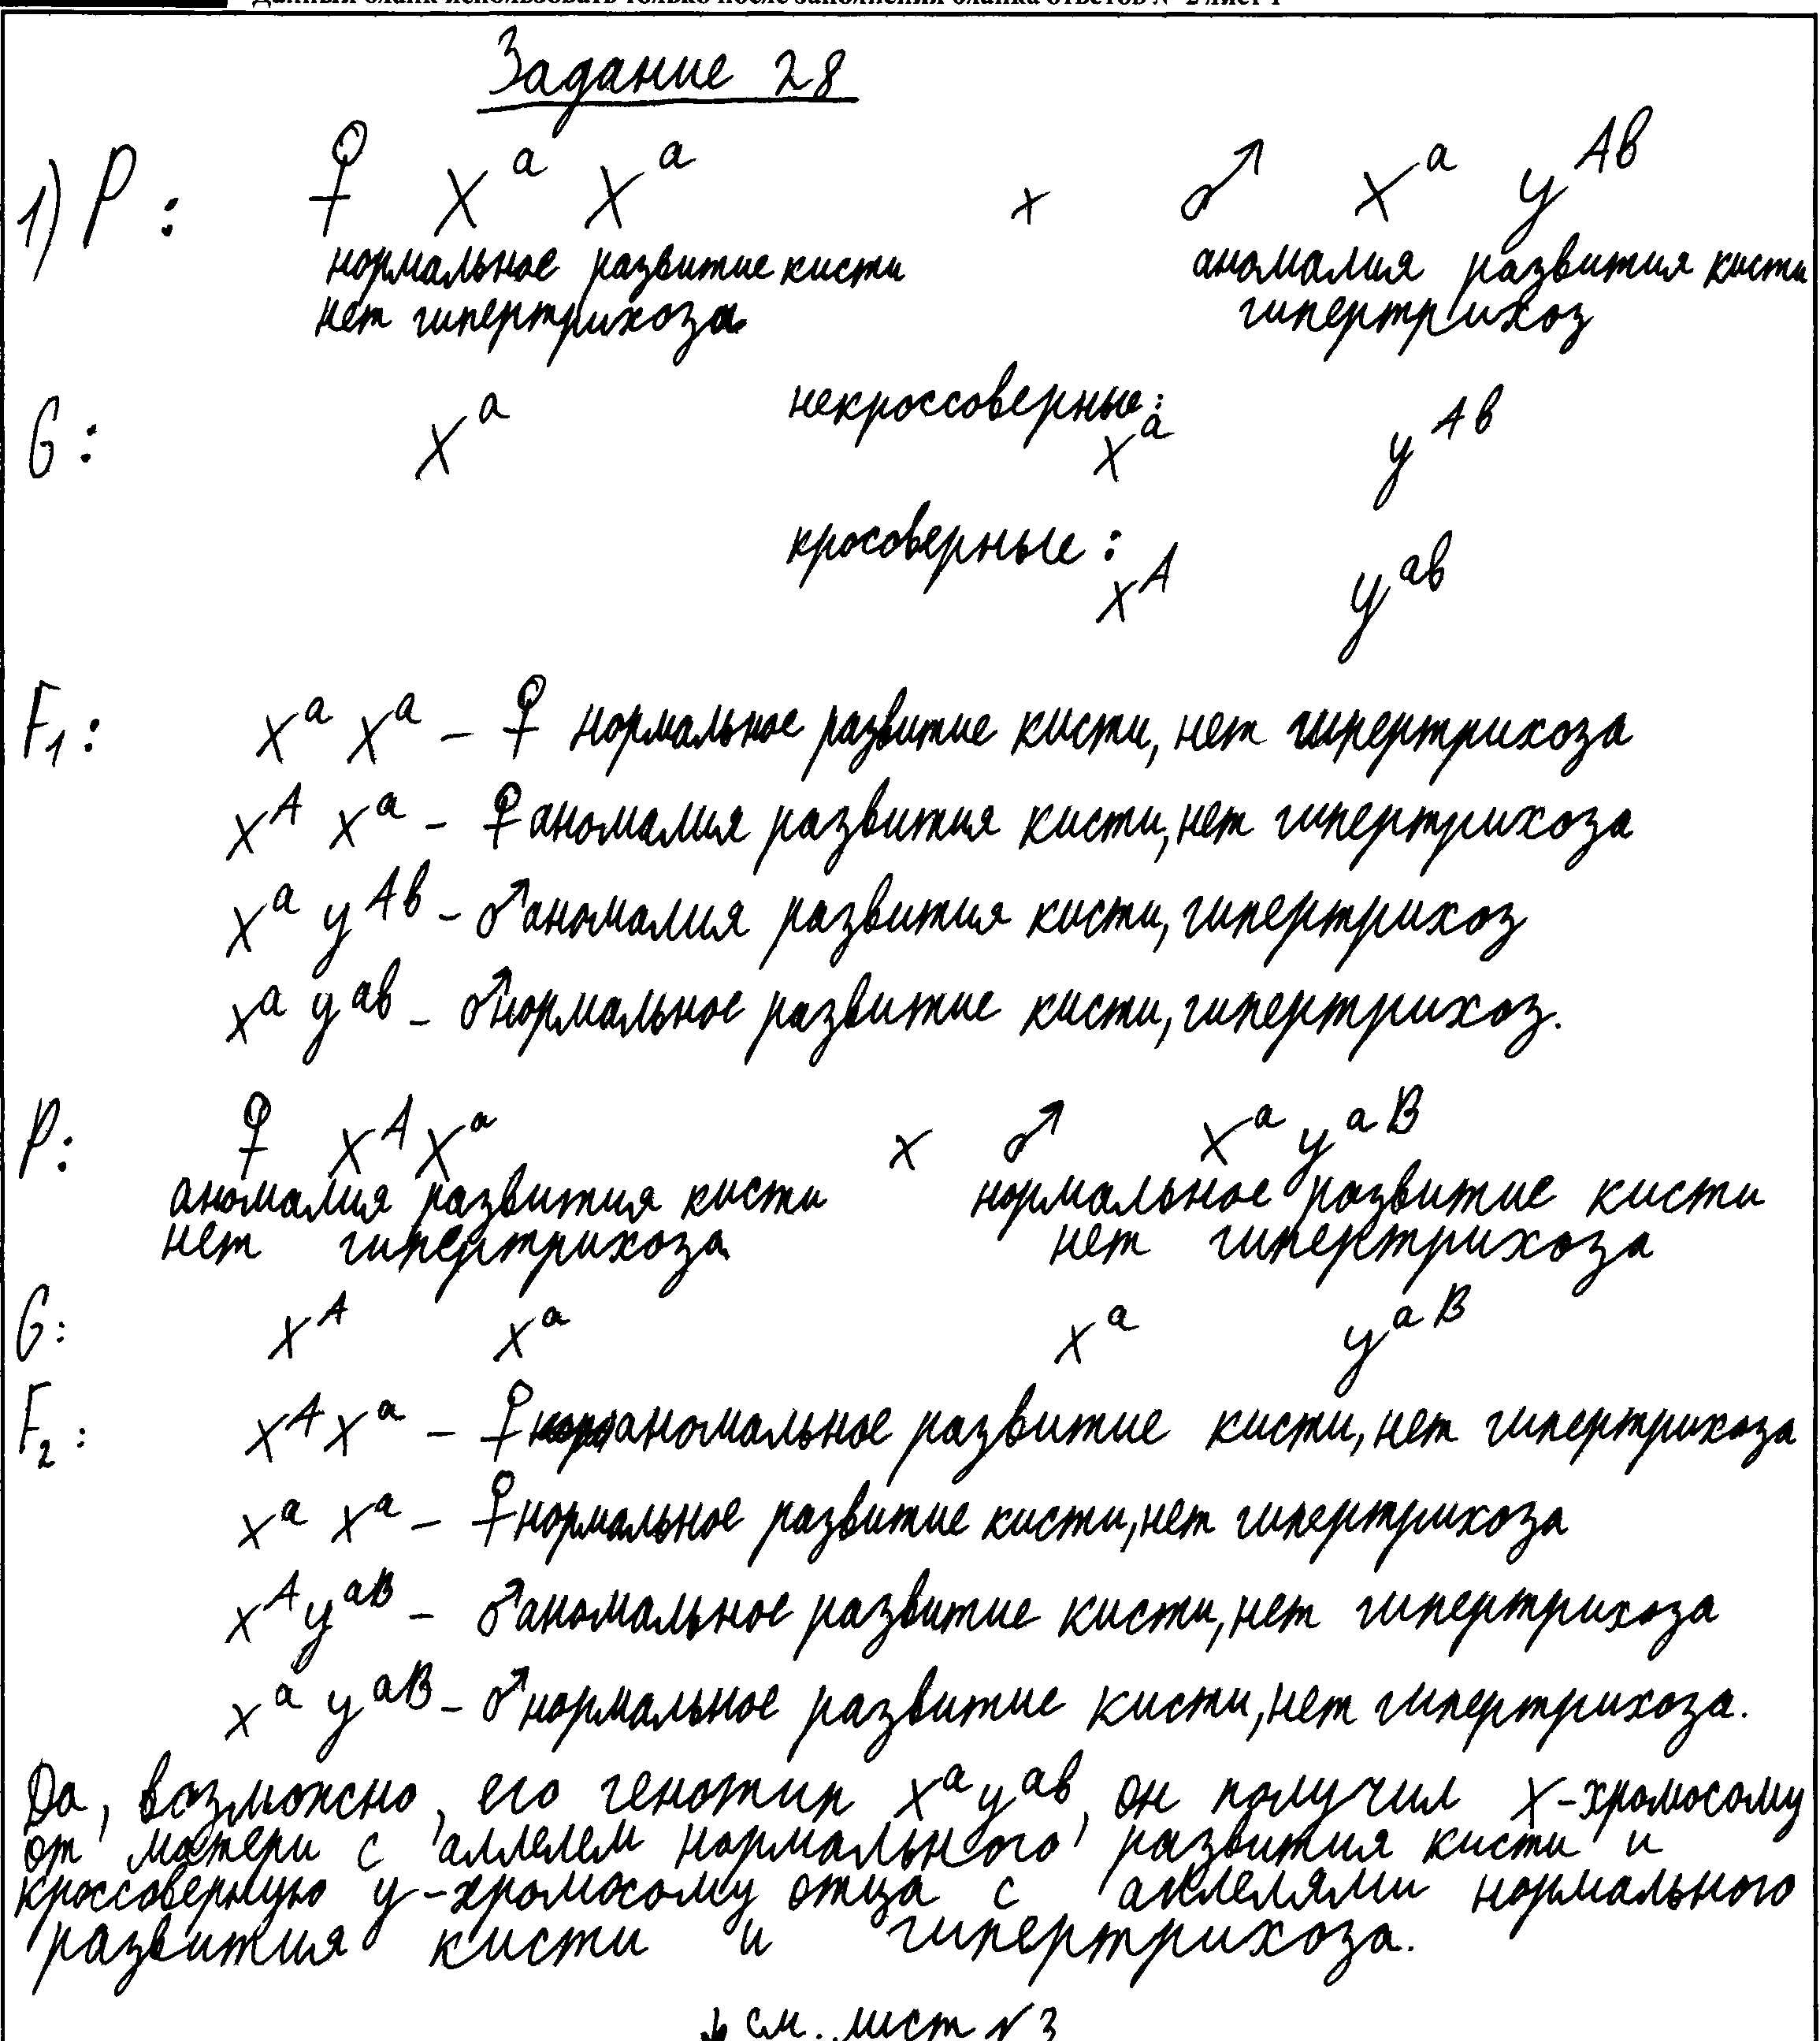 Данный бланк использовать только после заполнения бланка ответов № 2 лист 1
Задание 28
1) P: ♀ X^a X^a x ♂ X^a y^Ab
нормальное развитие кисти аномалия развития кисти
нет гипертрихоза гипертрихоз
G: X^a некроссоверные: X^a y^Ab
кросоверные: X^A y^ab
F1: X^a X^a – ♀ нормальное развитие кисти, нет гипертрихоза
X^A X^a – ♀ аномалия развития кисти, нет гипертрихоза
X^a y^Ab – ♂ аномалия развития кисти, гипертрихоз
X^a y^ab – ♂ нормальное развитие кисти, гипертрихоз.
P: ♀ X^A X^a x ♂ X^a y^aB
аномалия развития кисти нормальное развитие кисти
нет гипертрихоза нет гипертрихоза
G: X^A X^a X^a y^aB
F2: X^A X^a – ♀ аномальное развитие кисти, нет гипертрихоза
X^a X^a – ♀ нормальное развитие кисти, нет гипертрихоза
X^A y^aB – ♂ аномальное развитие кисти, нет гипертрихоза
X^a y^aB – ♂ нормальное развитие кисти, нет гипертрихоза.
Да, возможно, его генотип X^a y^ab, он получил X-хромосому
от матери с аллелем нормального развития кисти и
кроссоверную y-хромосому отца с аллелями нормального
развития кисти и гипертрихоза.
см. лист №3